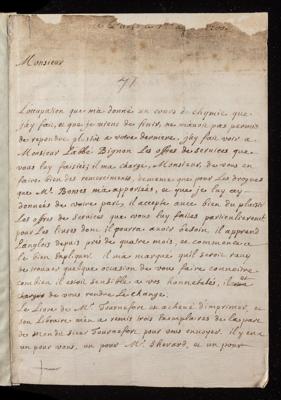 Monsieur
71
L'occupation que m'a donné un cours de chymie que
j'ay fait, et que je viens de finir, ne m'avoit pas permis
de repondre plutost a votre derniere, j'ay fait voir a
Monsieur L'abbé Bignon Les offres de services que
vous luy faisiés; il m'a chargé, Monsieur, de vous en
faire bien des remerciments, de meme que pour Les drogues
que Mr. Bonet m'a apportées, et que je luy ay
données de votre part, il accepte avec bien du plaisir
Les offres de services que vous luy faites particulierement
pour Les livres dont il pourra avoir besoin, il apprend
L'anglois depuis prés de quatre mois, et commence a
le bien expliquer. il m'a marqué qu'il seroit ravy
de trouver quelque occasion de vous faire connoitre
combien il est sensible a vos honnetetés, il
de vous rendre Le change.
Le Livre de Mr. Tournefort est achevé d'imprimer, et
son Libraire m'en a remis trois exemplaires de la part
de Monsieur Tournefort pour vous envoyer. il y en a
un pour vous, un pour Mr. Sherard, et un pour